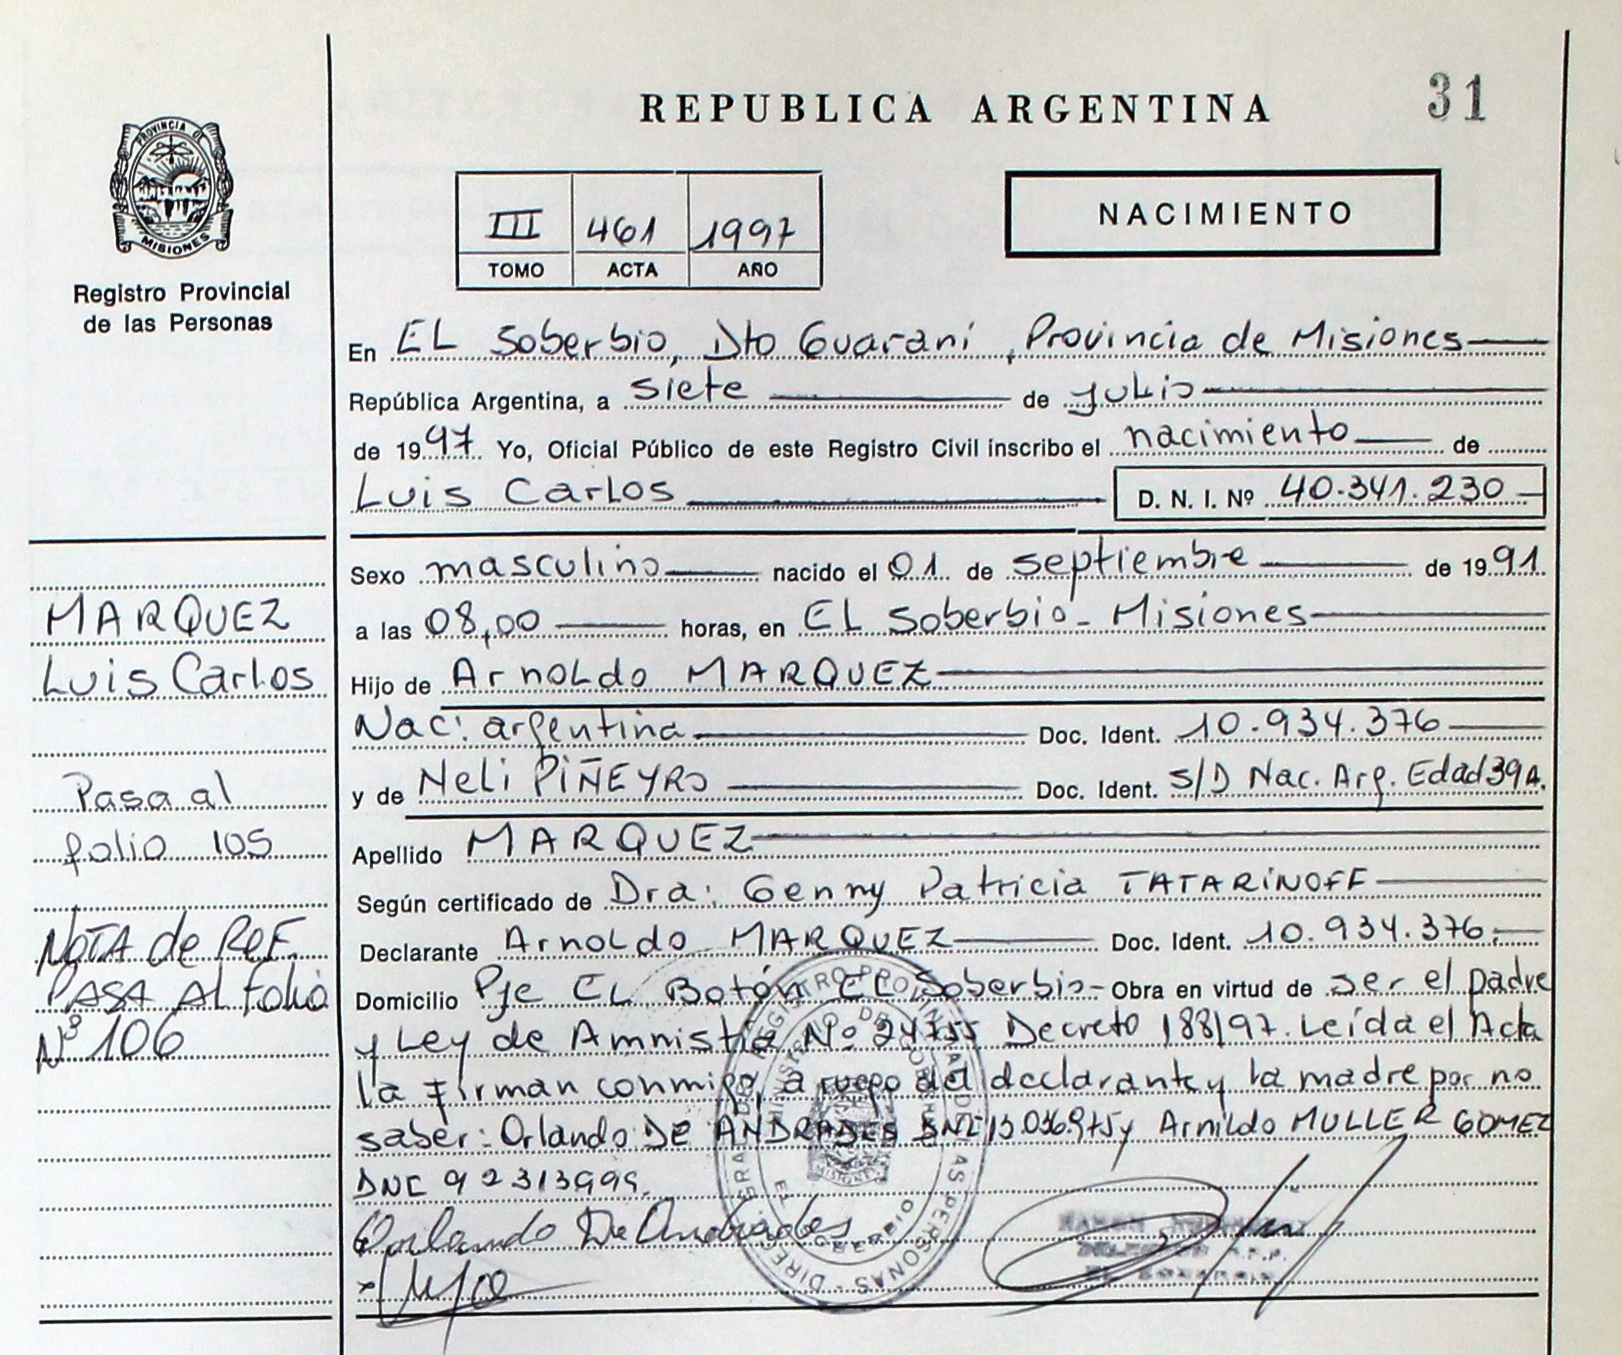 REPUBLICA ARGENTINA
31
PROVINCIA DE
MISIONES
Registro Provincial
de las Personas
III 461 1997
TOMO ACTA AÑO
NACIMIENTO
En EL Soberbio, Dto Guaraní, Provincia de Misiones
República Argentina, a siete de julio
de 1997 Yo, Oficial Público de este Registro Civil inscribo el nacimiento de
Luis Carlos D. N. I. Nº 40.341.230
Sexo masculino nacido el 01 de septiembre de 1991
a las 08,00 horas, en EL Soberbio - Misiones
Hijo de Arnoldo MARQUEZ
Nac: argentina Doc. Ident. 10.934.376
y de Neli PIÑEYRO Doc. Ident. S/D Nac. Arg. Edad 39 A.
Apellido MARQUEZ
Según certificado de Dra: Genny Patricia TATARINOFF
Declarante Arnoldo MARQUEZ Doc. Ident. 10.934.376
Domicilio Pje EL Botón EL Soberbio - Obra en virtud de ser el padre
y Ley de Amnistía Nº 24755 Decreto 188/97. Leída el Acta
la firman conmigo, a ruego del declarante y la madre por no
saber: Orlando DE ANDRADES y Arnildo MULLER GOMEZ
DNI 92313999.
Orlando De Andrades
MARQUEZ
Luis Carlos
Pasa al
folio 105
NOTA de REF.
PASA AL Folio
Nº 106